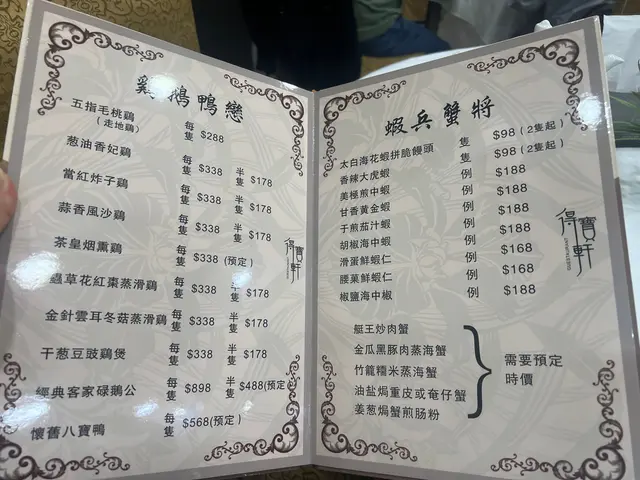 雞鵝鴨戀
五指毛桃鷄 每隻 $288
(走地鷄)
葱油香妃鷄 每隻 $338 半隻 $178
當紅炸子鷄 每隻 $338 半隻 $178
蒜香風沙鷄 每隻 $338 半隻 $178
茶皇烟熏鷄 每隻 $338 (預定)
蟲草花紅棗蒸滑鷄 每隻 $338 半隻 $178
金針雲耳冬菇蒸滑鷄 每隻 $338 半隻 $178
干葱豆豉鷄煲 每隻 $338 半隻 $178
經典客家碌鵝公 每隻 $898 半隻 $488(預定)
懷舊八寶鴨 每隻 $568(預定)
得寶軒
蝦兵蟹將
太白海花蝦拼脆饅頭 隻 $98 (2隻起)
香辣大虎蝦 隻 $98 (2隻起)
美極煎中蝦 例 $188
甘香黃金蝦 例 $188
干煎茄汁蝦 例 $188
胡椒海中蝦 例 $188
滑蛋鮮蝦仁 例 $168
腰菓鮮蝦仁 例 $168
椒鹽海中椒 例 $188
艇王炒肉蟹
金瓜黑豚肉蒸海蟹
竹籠糯米蒸海蟹
油盐焗重皮或奄仔蟹
姜葱焗蟹煎肠粉
需要預定
時價
得寶軒